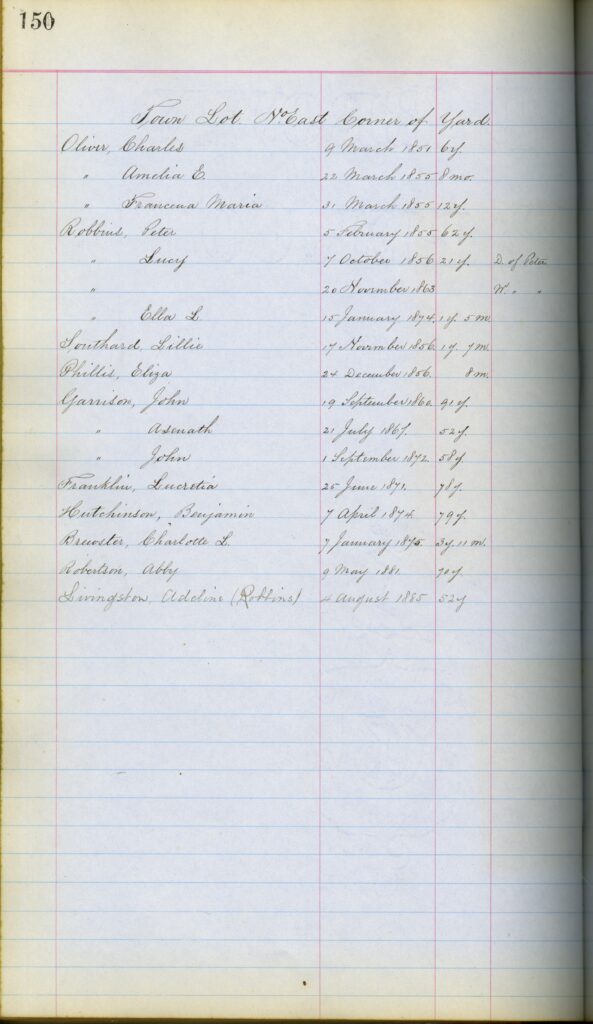 150
Town Lot. No East Corner of Yard.
Oliver, Charles 9 March 1851 6y
" Amelia E. 22 March 1855 8 mo.
" Francena Maria 31 March 1855 12y.
Robbins, Peter 5 February 1855 62y.
" Lucy 7 October 1856 21y. D. of Peter
" 20 November 1863 W. " "
" Ella L 15 January 1874. 1y. 5 m.
Southard, Lillie 17 November 1856. 1y. 7m.
Phillis, Eliza 24 December 1856. 8 m.
Garrison, John 19 September 1860. 91y.
" Asenath 21 July 1867. 52y.
" John 1 September 1872. 58y.
Franklin, Lucretia 25 June 1871. 78y.
Hutchinson, Benjamin 7 April 1874. 79y.
Brewster, Charlotte L. 7 January 1875. 3y. 11 m.
Robertson, Abby 9 May 1881. 70y.
Livingston, Adeline (Robbins) 4 August 1885 52y